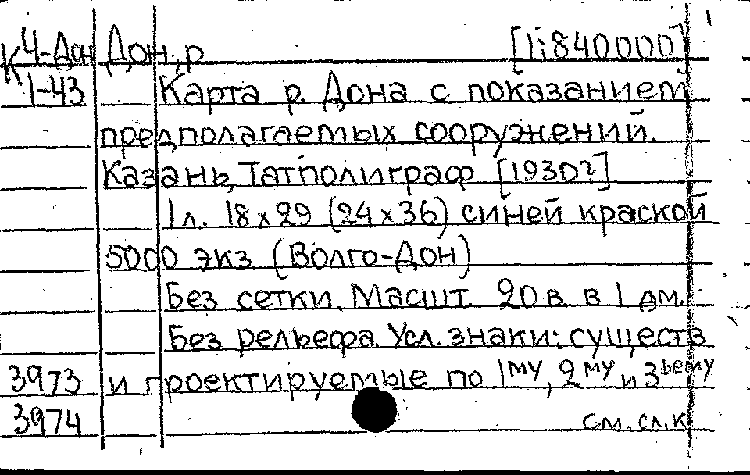 К 4-Дон Дон, р [1:840000]
1-43 Карта р. Дона с показанием
предполагаемых сооружений.
Казань, Татполиграф [1930г]
1л. 18х29 (24х36) синей краской
5000 экз (Волго-Дон)
Без сетки. Масшт. 20в. в 1 дм.
Без рельефа. Усл. знаки: существ
3973 и проектируемые по 1му, 2му и 3ьему
3974 см. сл. к